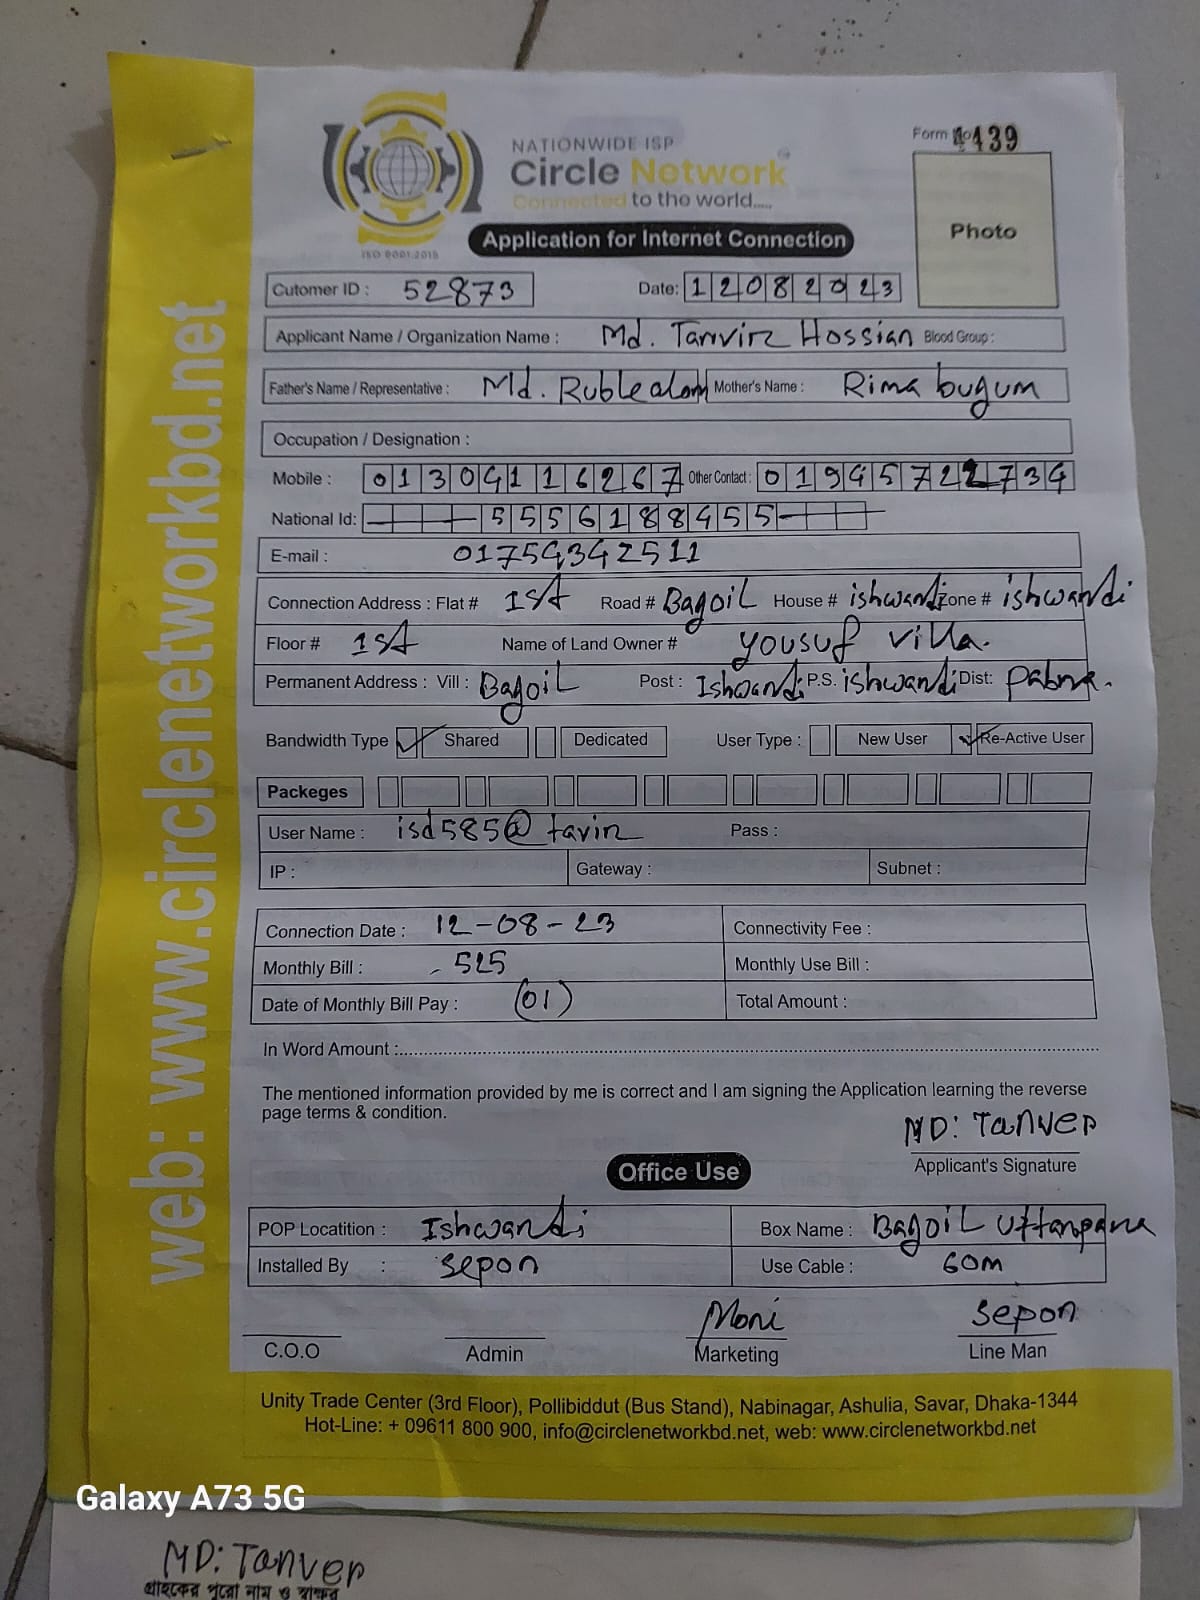 Form No 4439
NATIONWIDE ISP
Circle Network
Connected to the world.....
ISO 9001:2015
Application for Internet Connection
Photo
Cutomer ID : 52873 Date: 12082023
Applicant Name / Organization Name : Md. Tanvir Hossian Blood Group :
Father's Name / Representative : Md. Rublealom Mother's Name : Rima bugum
Occupation / Designation :
Mobile : 01304116267 Other Contact : 01945722734
National Id: 5556188455
E-mail : 01754342511
Connection Address : Flat # 1st Road # Bagoil House # ishwardi Zone # ishwardi
Floor # 1st Name of Land Owner # yousuf villa.
Permanent Address : Vill : Bagoil Post : Ishwardi P.S. ishwardi Dist: Pabna.
Bandwidth Type Shared Dedicated User Type : New User Re-Active User
Packeges
User Name : isd585@tavir Pass :
IP : Gateway : Subnet :
Connection Date : 12-08-23 Connectivity Fee :
Monthly Bill : 525 Monthly Use Bill :
Date of Monthly Bill Pay : (01) Total Amount :
In Word Amount :
The mentioned information provided by me is correct and I am signing the Application learning the reverse
page terms & condition.
MD: Tanver
Applicant's Signature
Office Use
POP Locatition : Ishwardi Box Name : Bagoil Uttarpara
Installed By : sepon Use Cable : 60m
Moni sepon
C.O.O Admin Marketing Line Man
Unity Trade Center (3rd Floor), Pollibiddut (Bus Stand), Nabinagar, Ashulia, Savar, Dhaka-1344
Hot-Line: + 09611 800 900, info@circlenetworkbd.net, web: www.circlenetworkbd.net
web: www.circlenetworkbd.net
Galaxy A73 5G
MD: Tanver
গ্রাহকের পুরো নাম ও স্বাক্ষর